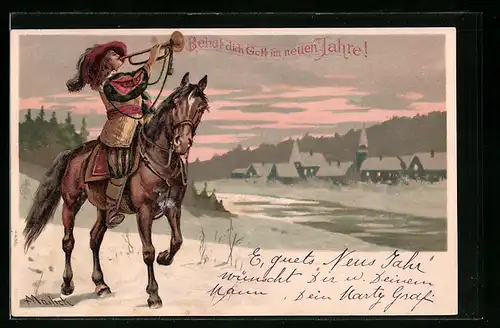 Behüt dich Gott im neuen Jahre!
E, guets Neus Jahr
wünscht Dir u. Deinem
Mann, Dein Marty Graf.
Mailick